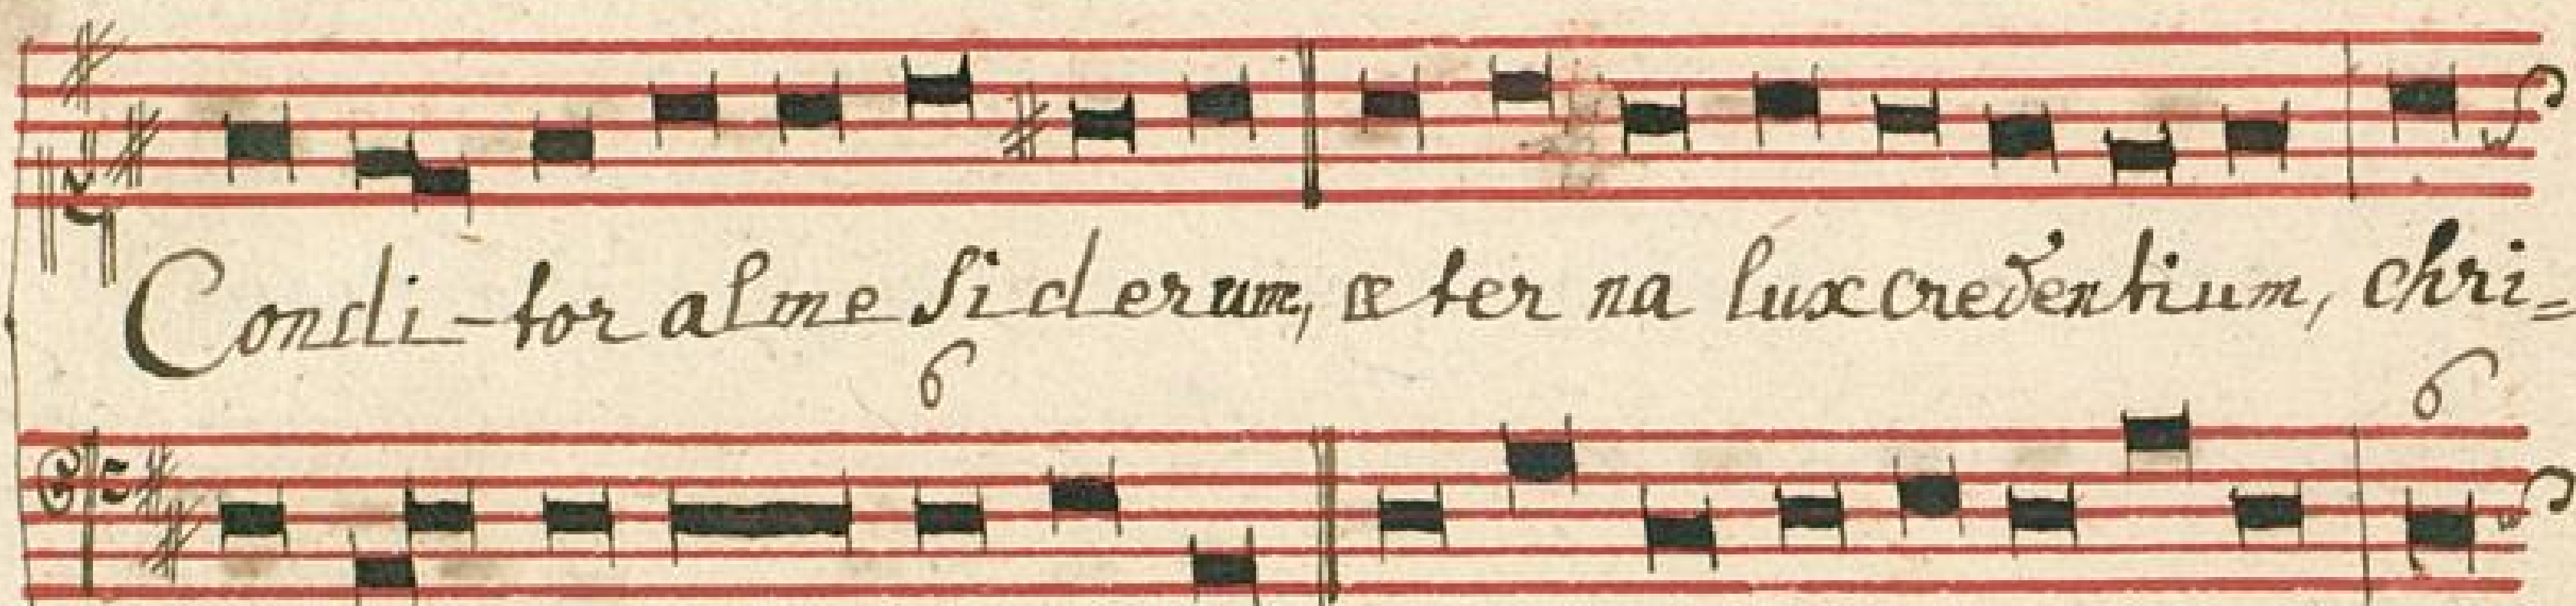 Condi-tor alme siderum, æter na lux credentium, chri=
6 6